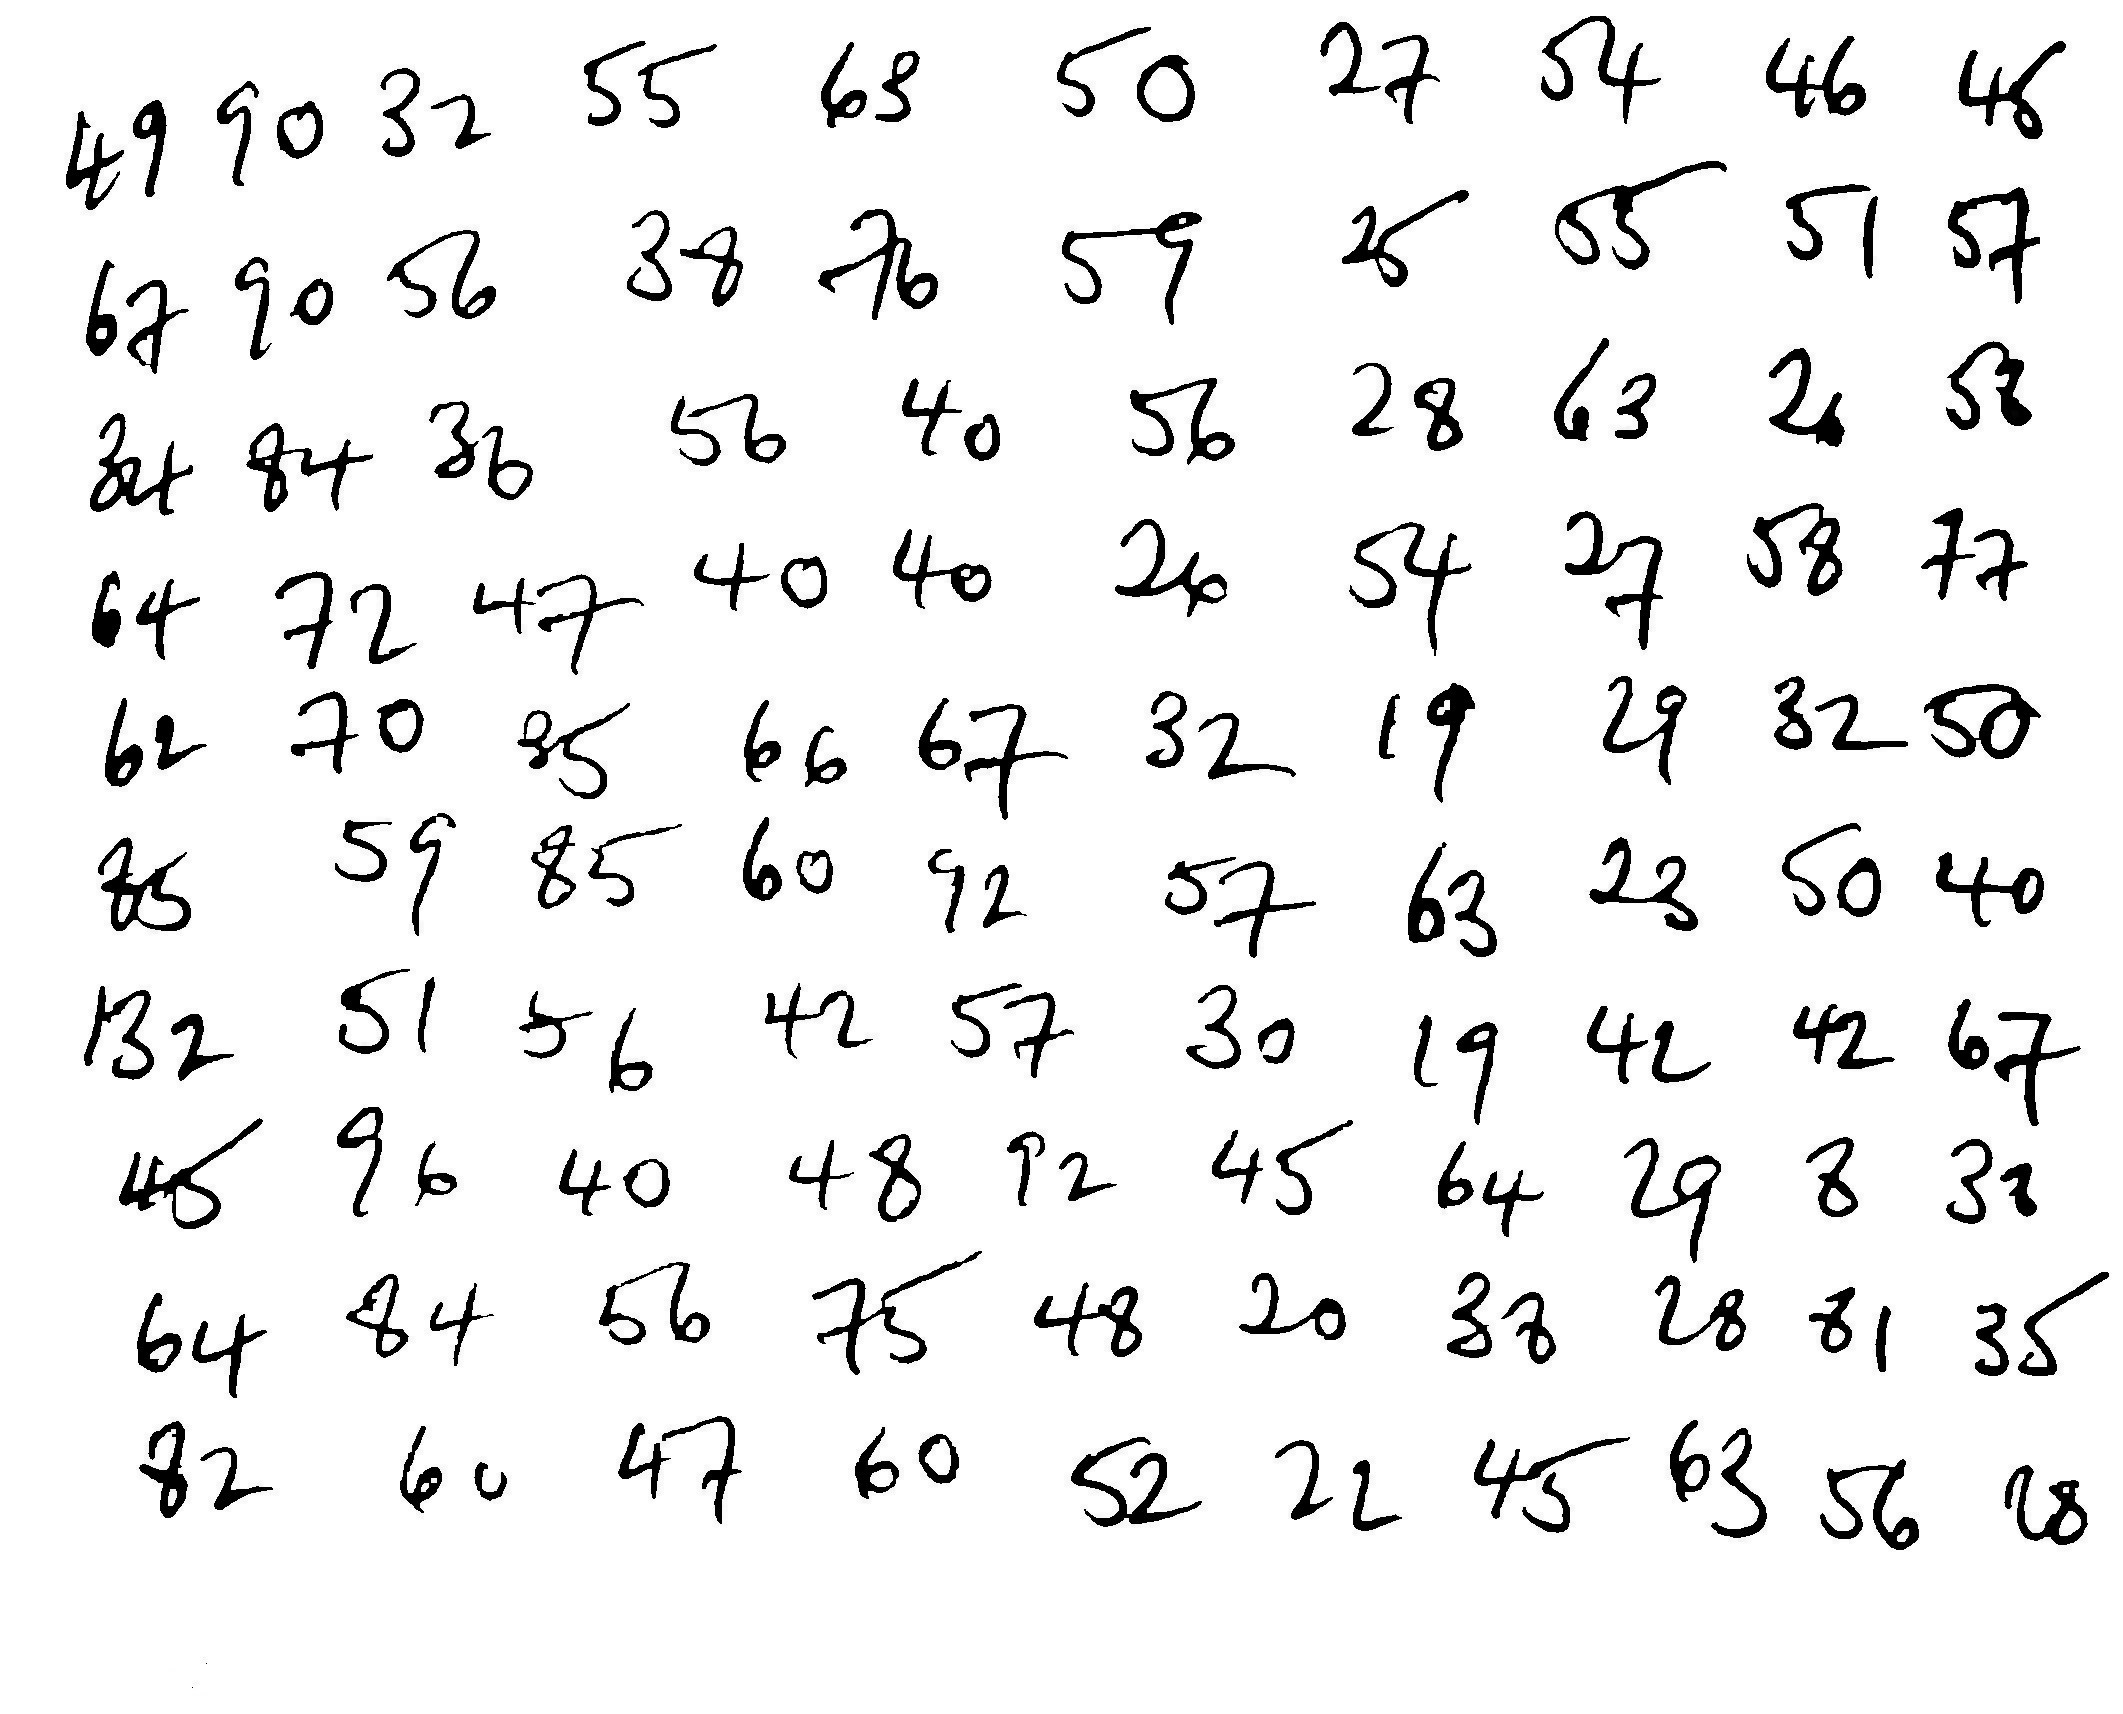 49 90 32 55 63 50 27 54 46 48
67 90 56 38 76 59 25 55 51 57
34 84 36 56 40 56 28 63 26 58
64 72 47 40 40 26 54 27 58 77
62 70 85 66 67 32 19 29 32 50
85 59 85 60 92 57 63 23 50 40
132 51 56 42 57 30 19 42 42 67
45 96 40 48 92 45 64 29 8 38
64 84 56 75 48 20 38 28 81 35
82 60 47 60 52 22 45 63 56 28